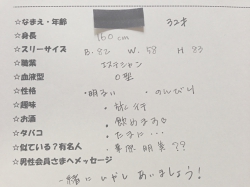 ☆なまえ・年齢 32才
☆身長 160cm
☆スリーサイズ B.82 W.58 H.83
☆職業 エステシャン
☆血液型 O型
☆性格 ・明るい ・のんびり
☆趣味 ・旅行
☆お酒 ・飲めます
☆タバコ ・たまに…
☆似ている?有名人
☆男性会員さまへメッセージ
一緒に いやし あいましょう!